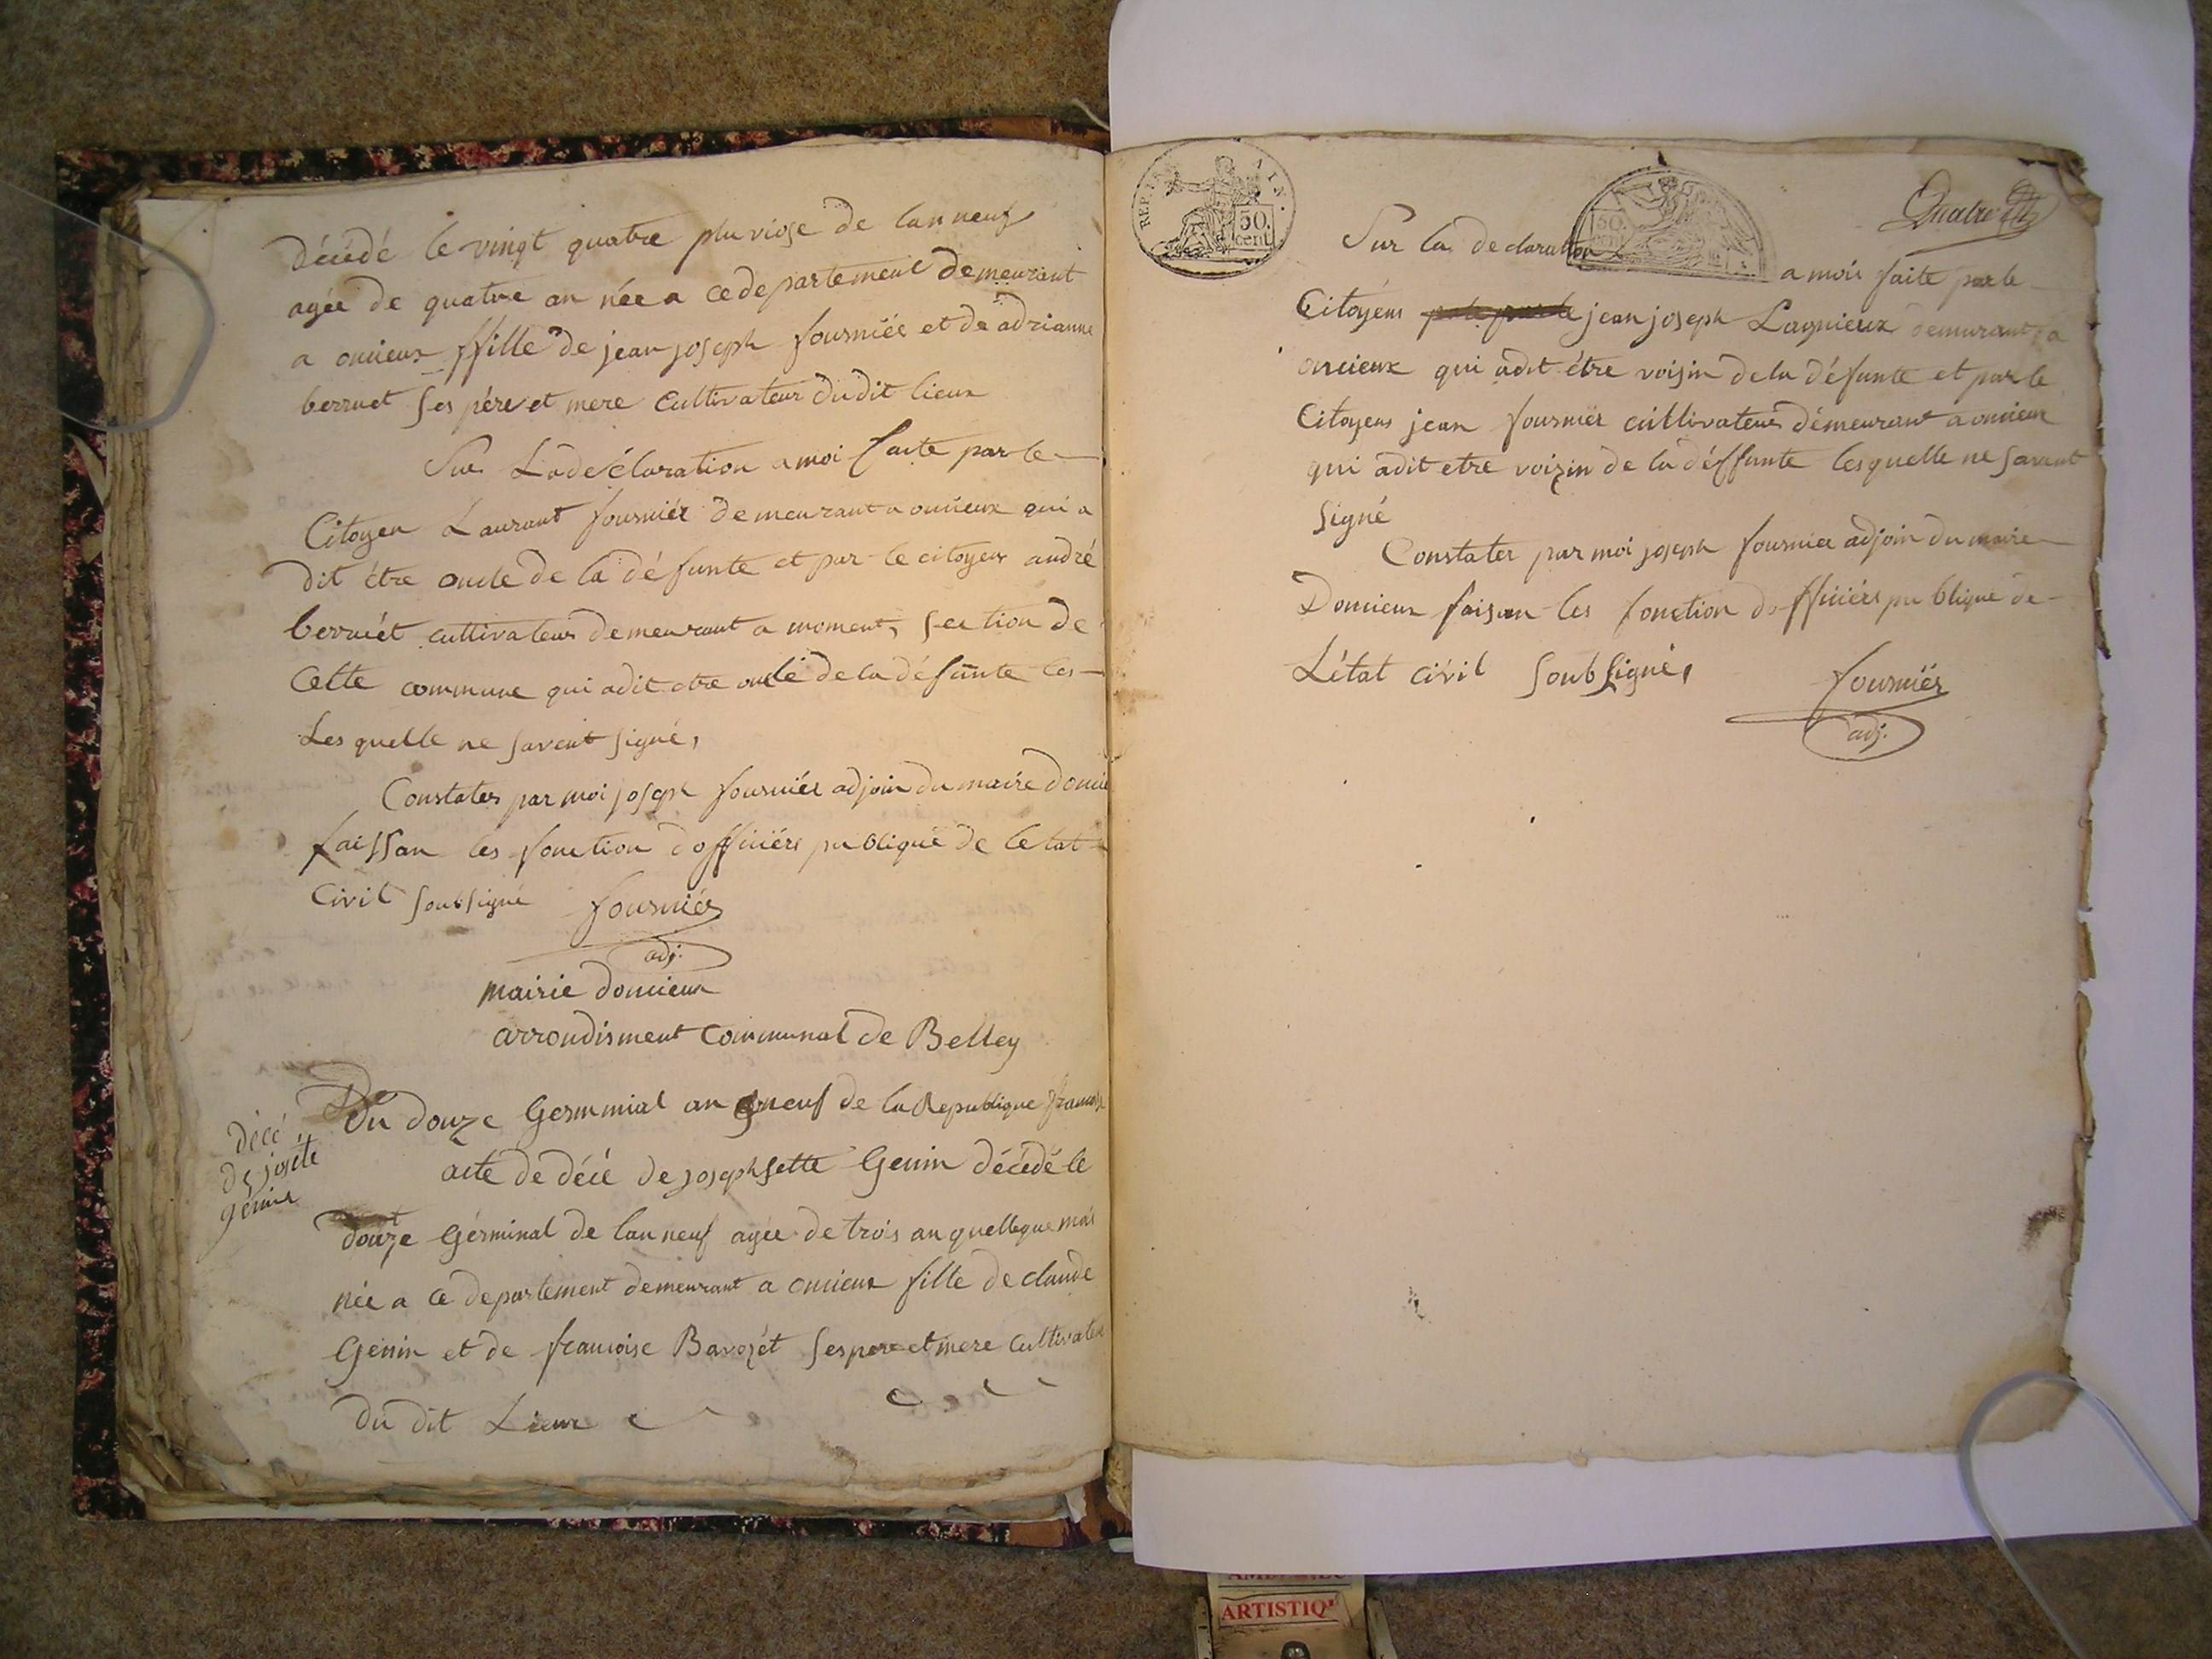 décédé le vingt quatre pluviose de lan neuf
agée de quatre an née a ce departement demeurant
a oncieux ffille de jean joseph fourniér et de adrianne
berruet ses pére et mere Cultivateur du dit lieux
Sur La déclaration a moi faite par le
Citoyen Laurant fourniér demeurant a oncieux qui a
dit étre oncle de la défunte et par le citoyens andré
berruét cultivateur demeurant a moment, section de
Cette commune qui a dit etre oncle de la défunte les
Les quelle ne savent signé,
Constates par moi joseph fourniér adjoin du maire doncie
faissan les fonction dofficiérs publique de letat
Civil soubsigné fourniér
adj.
mairie doncieux
arrondisment Communal de Belley
Du douze Germmial an neuf de la Republique francois
décé
de joséte
génin
acte de décé de josephsette Genin décédé le
douze Gérminal de lan neuf agée de trois an quellque mois
née a ce departement demeurant a oncieux fille de claude
Genin et de francoise Barozét ses pere et mere Cultivateu
du dit Lieux
REP. 1 IN.
50.
cent
50.
cent
Quatre
Sur la declaration
a mois faite par le
Citoyens jean joseph Lagnieux demurant a
oncieux qui a dit étre voisin de la défunte et par le
Citoyens jean fourniér cultivateur démeurant a oncieux
qui a dit etre voizin de la déffunte les quelle ne savent
signé
Constater par moi joseph fournier adjoin du maire
Doncieux faisan les fonction dofficiérs publique de
Létat Civil soubsigné, fourniér
adj.
ARTISTIQ